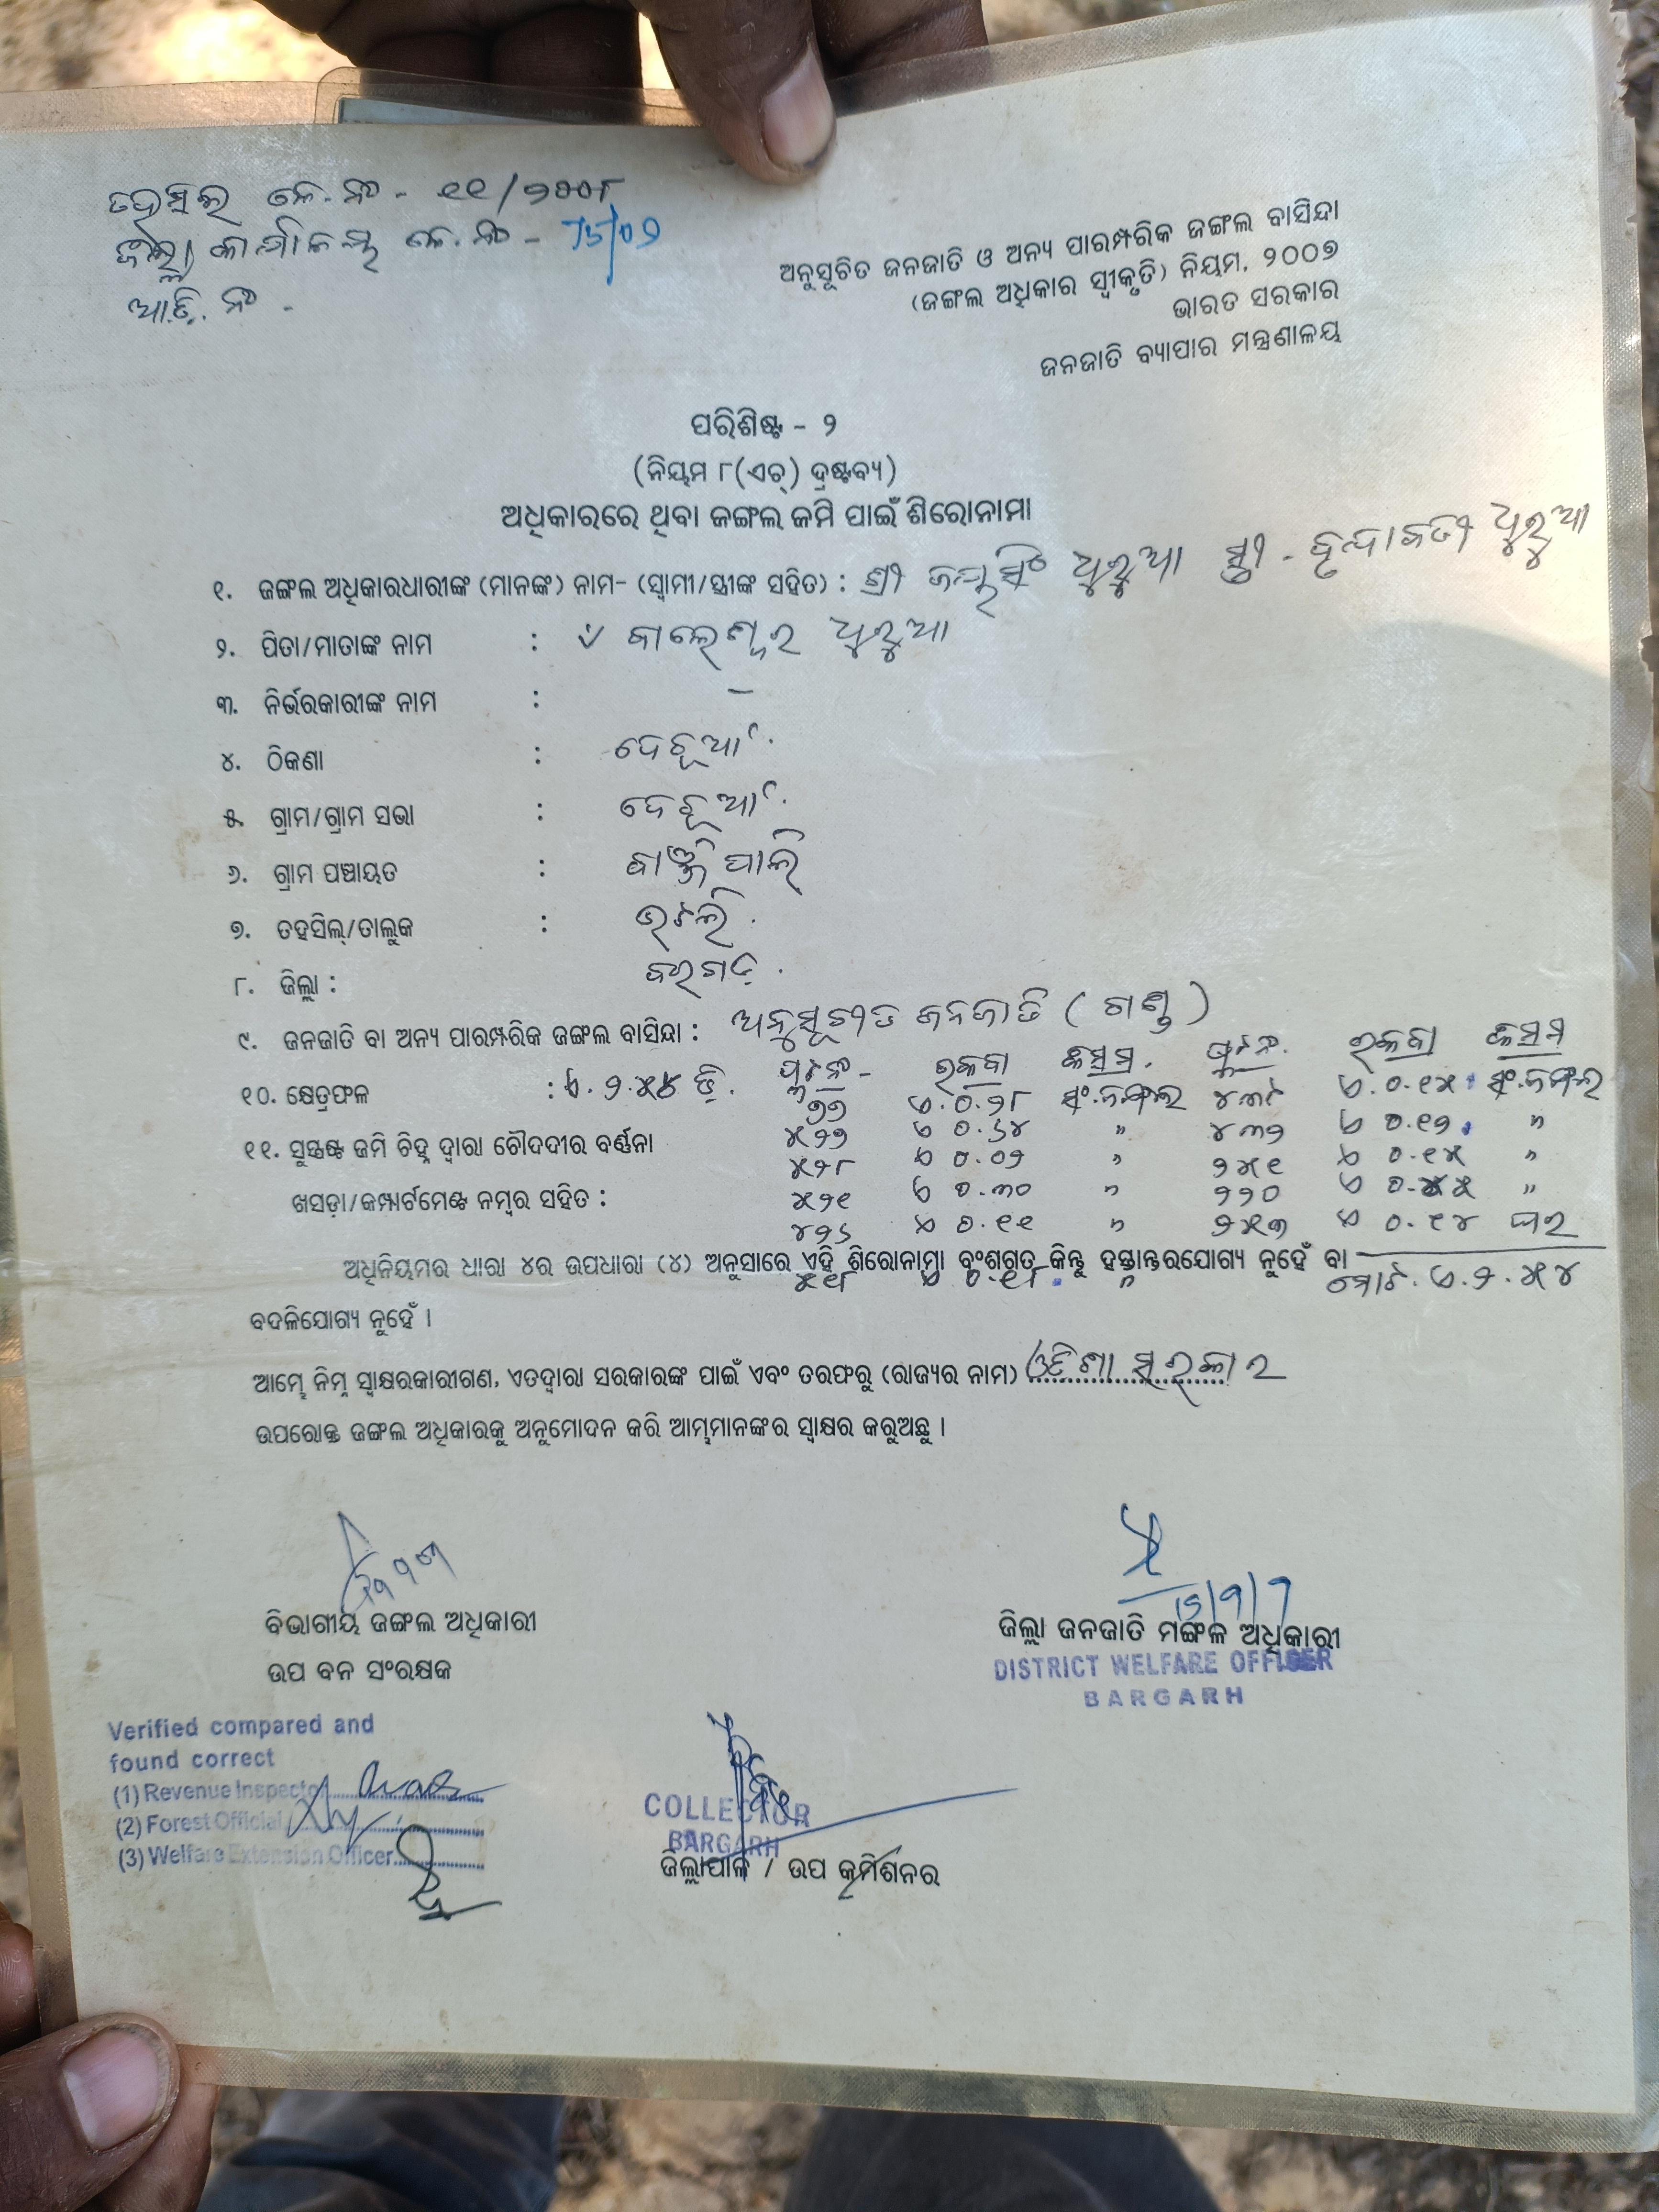 ତହସିଲ କେ.ନଂ - ୧୧/୨୦୦୮
ଜିଲ୍ଲା କାର୍ଯ୍ୟାଳୟ କେ.ନଂ -
ଆ.ଡି. ନଂ -
ଅନୁସୂଚିତ ଜନଜାତି ଓ ଅନ୍ୟ ପାରମ୍ପରିକ ଜଙ୍ଗଲ ବାସିନ୍ଦା
(ଜଙ୍ଗଲ ଅଧିକାର ସ୍ୱୀକୃତି) ନିୟମ, ୨୦୦୭
ଭାରତ ସରକାର
ଜନଜାତି ବ୍ୟାପାର ମନ୍ତ୍ରଣାଳୟ
ପରିଶିଷ୍ଟ - ୨
(ନିୟମ ୮(ଏଚ୍) ଦ୍ରଷ୍ଟବ୍ୟ)
ଅଧିକାରରେ ଥିବା ଜଙ୍ଗଲ ଜମି ପାଇଁ ଶିରୋନାମା
୧. ଜଙ୍ଗଲ ଅଧିକାରଧାରୀଙ୍କ (ମାନଙ୍କ) ନାମ- (ସ୍ୱାମୀ/ସ୍ତ୍ରୀଙ୍କ ସହିତ) : ଶ୍ରୀ ଜୟସିଂ ଧୁରୁଆ ସ୍ତ୍ରୀ - ବୃନ୍ଦାବତୀ ଧୁରୁଆ
୨. ପିତା/ମାତାଙ୍କ ନାମ : ବାଲେଶ୍ୱର ଧୁରୁଆ
୩. ନିର୍ଭରକାରୀଙ୍କ ନାମ : –
୪. ଠିକଣା :
୫. ଗ୍ରାମ/ଗ୍ରାମ ସଭା :
୬. ଗ୍ରାମ ପଞ୍ଚାୟତ :
୭. ତହସିଲ୍/ତାଲୁକ : ଭଟଲି.
୮. ଜିଲ୍ଲା : ବରଗଡ଼.
୯. ଜନଜାତି ବା ଅନ୍ୟ ପାରମ୍ପରିକ ଜଙ୍ଗଲ ବାସିନ୍ଦା : ଅନୁସୂଚୀତ ଜନଜାତି (ଗଣ୍ଡ)
ପ୍ଲଟନଂ - ରକବା କିସମ. ପ୍ଲଟନଂ. ରକବା କିସମ
୧୦. କ୍ଷେତ୍ରଫଳ : ଏ. ୨.୫୪ ଡି. ୭୭ ଏ.୦.୨୮ ସଂ.ଜଙ୍ଗଲ ଏ.୦.୧୫ ସଂ.ଜଙ୍ଗଲ
୫୨୭ ଏ ୦.୬୪ " ୪୩୭ ଏ ୦.୧୨ "
୧୧. ସୁସ୍ପଷ୍ଟ ଜମି ଚିହ୍ନ ଦ୍ୱାରା ଚୌଦଦୀର ବର୍ଣ୍ଣନା
୫୨୮ ଏ ୦.୦୨ " ୨୫୧ ଏ ୦.୧୫ "
ଖସଡ଼ା/କମ୍ପାର୍ଟମେଣ୍ଟ ନମ୍ବର ସହିତ :
୫୨୧ ଏ ୦.୩୦ " ୨୨୦ ଏ "
୪୨୬ ଏ ୦.୧୧ " ୨୫୩ ଏ ୦.୧୪ ଘର
ଅଧିନିୟମର ଧାରା ୪ର ଉପଧାରା (୪) ଅନୁସାରେ ଏହି ଶିରୋନାମା ବଂଶଗତ କିନ୍ତୁ ହସ୍ତାନ୍ତରଯୋଗ୍ୟ ନୁହେଁ ବା
୫୧୮ ଏ ୦.୧୮ " ମୋଟ. ଏ. ୨. ୫୪
ବଦଳିଯୋଗ୍ୟ ନୁହେଁ ।
ଆମ୍ଭେ ନିମ୍ନ ସ୍ୱାକ୍ଷରକାରୀଗଣ, ଏତଦ୍ୱାରା ସରକାରଙ୍କ ପାଇଁ ଏବଂ ତରଫରୁ (ରାଜ୍ୟର ନାମ) ଓଡିଶା ସରକାର
ଉପରୋକ୍ତ ଜଙ୍ଗଲ ଅଧିକାରକୁ ଅନୁମୋଦନ କରି ଆମ୍ଭମାନଙ୍କର ସ୍ୱାକ୍ଷର କରୁଅଛୁ ।
ବିଭାଗୀୟ ଜଙ୍ଗଲ ଅଧିକାରୀ
ଉପ ବନ ସଂରକ୍ଷକ
ଜିଲ୍ଲା ଜନଜାତି ମଙ୍ଗଳ ଅଧିକାରୀ
DISTRICT WELFARE OFFICER
BARGARH
Verified compared and
found correct
(1) Revenue Inspector
(2) Forest Official
(3) Welfare Extension Officer
COLLECTOR
BARGARH
ଜିଲ୍ଲାପାଳ / ଉପ କମିଶନର